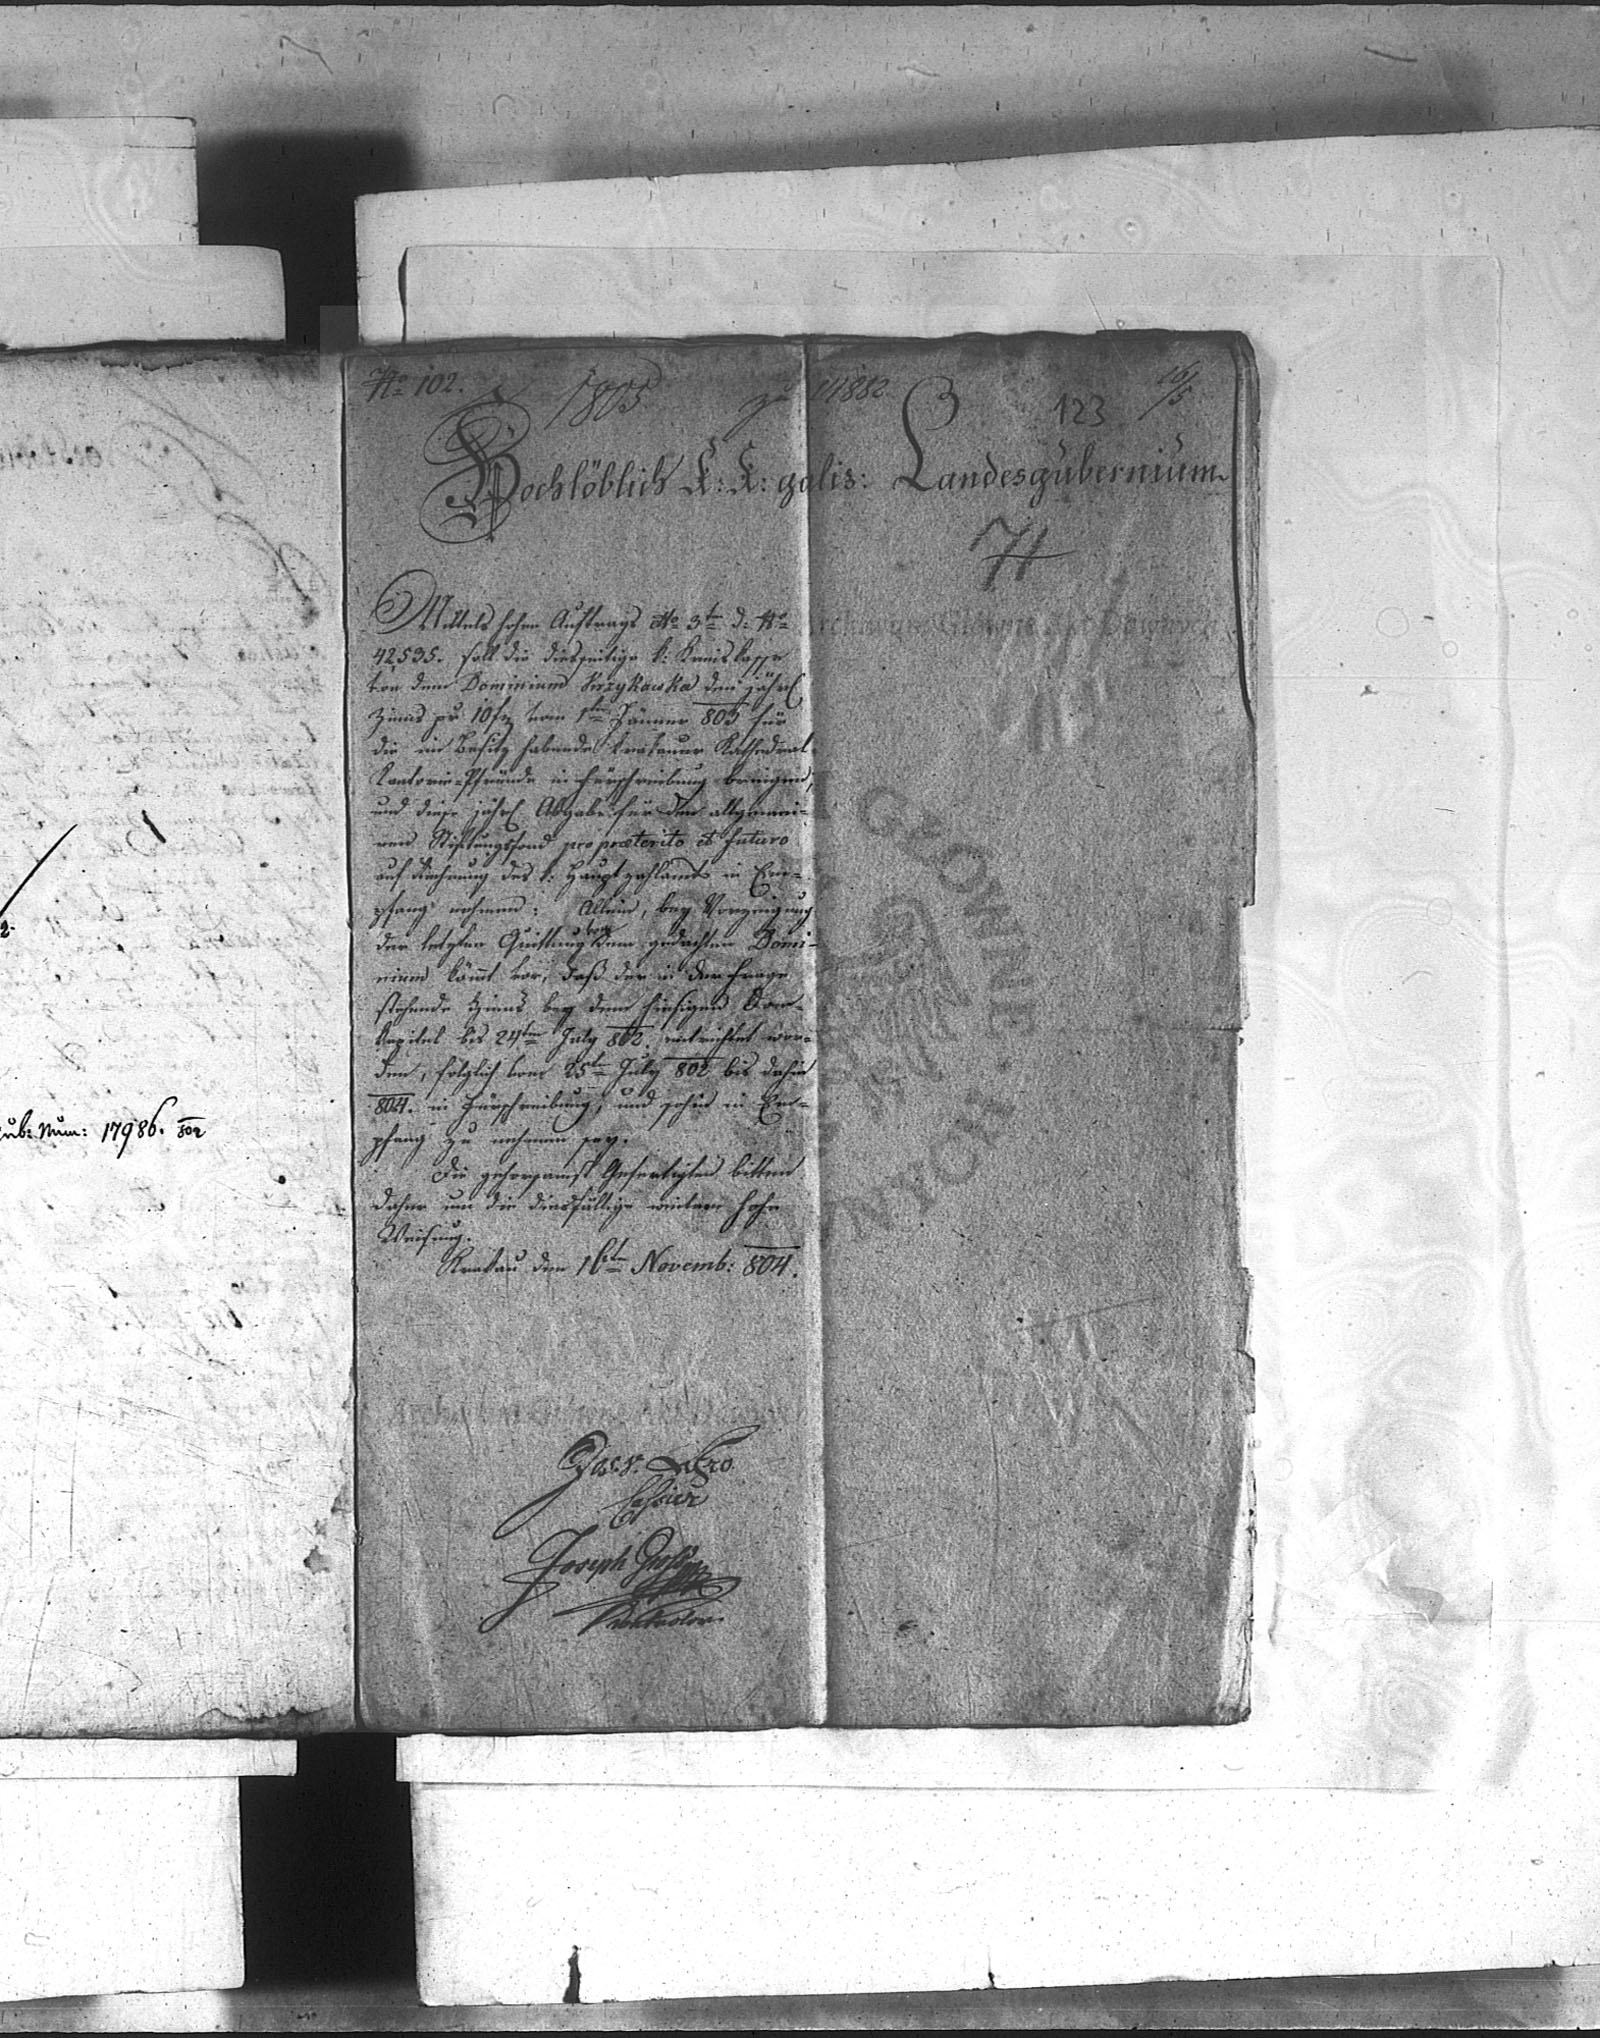 No 102.
1805
zu 14882
16/5
123
Hochlöblich K: K: galis: Landesgubernium
74
Mittels hohen Auftrags No 3ten d: No
42,535. soll die diesseitige k: Kreiskasse
von dem Dominium Krzykawka den jährl
Zinns pr 10 fr vom 1ten Jänner 803 für
die im Besitz habende Krakauer Kathedral-
Kantorie-Pfründe in Fürschreibung bringen,
und diese jährl Abgabe für den allgemei-
nen Stiftungsfond pro præterito et futuro
auf Rechnung des k: Hauptzahlamts in Em-
pfang nehmen: Allein, bey Vorzeigung
der letzten Quittung von dem gedachten Domi-
nium kömt vor, daß der in der Frage
stehende Zinns bey dem hiesigen Dom-
kapitel bis 24ten July 802. entrichtet wor-
den, folglich vom 25ten July 802 bis dahin
804. in Fürschreibung, und sohin in Em-
pfang zu nehmen sey.
Die gehorsamst Gefertigten bitten
daher um die diesfällige weitere hohe
Weisung.
Krakau den 16ten Novemb: 804.
Cassier
Joseph
Kontrolor
ub: Num: 17986. 802